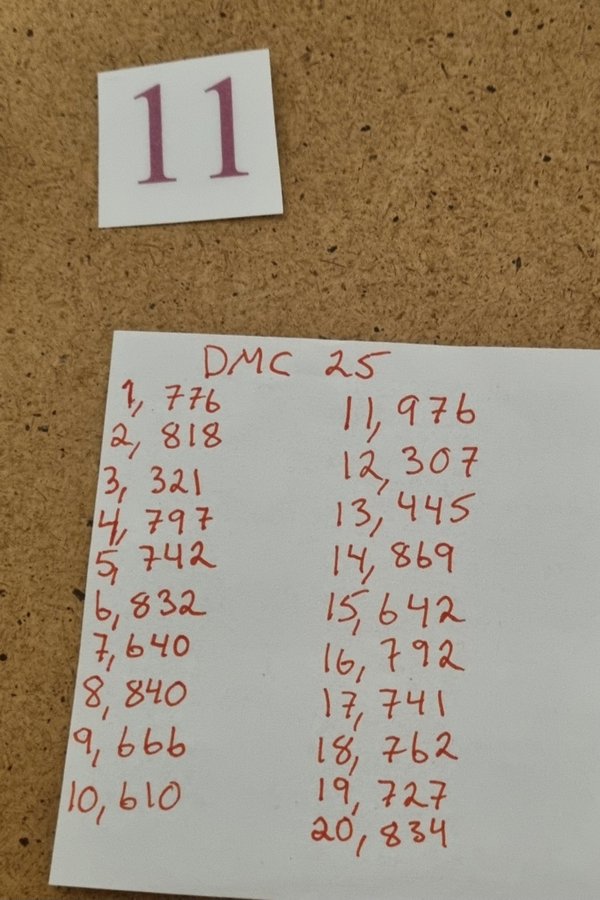 11
DMC 25
1, 776
2, 818
3, 321
4, 797
5, 742
6, 832
7, 640
8, 840
9, 666
10, 610
11, 976
12, 307
13, 445
14, 869
15, 642
16, 792
17, 741
18, 762
19, 727
20, 834